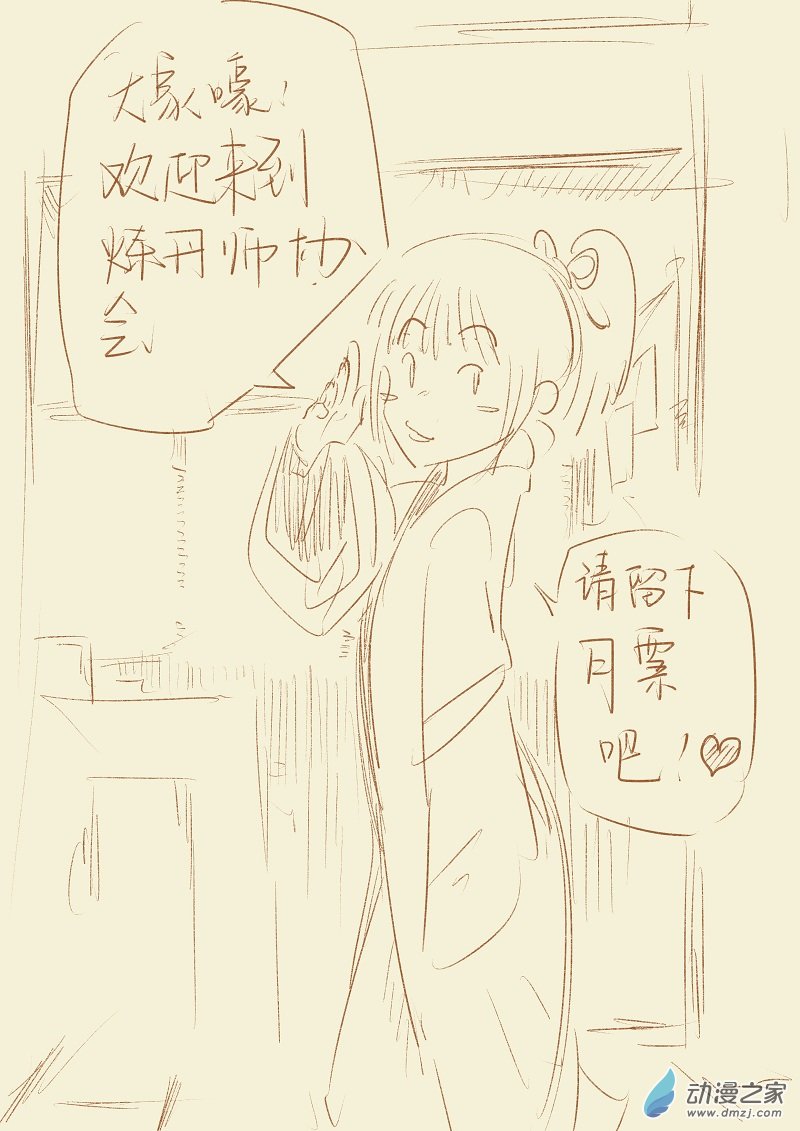 大家嚎！
欢迎来到
炼丹师协
会
请留下
月票
吧！♥
动漫之家
www.dmzj.com